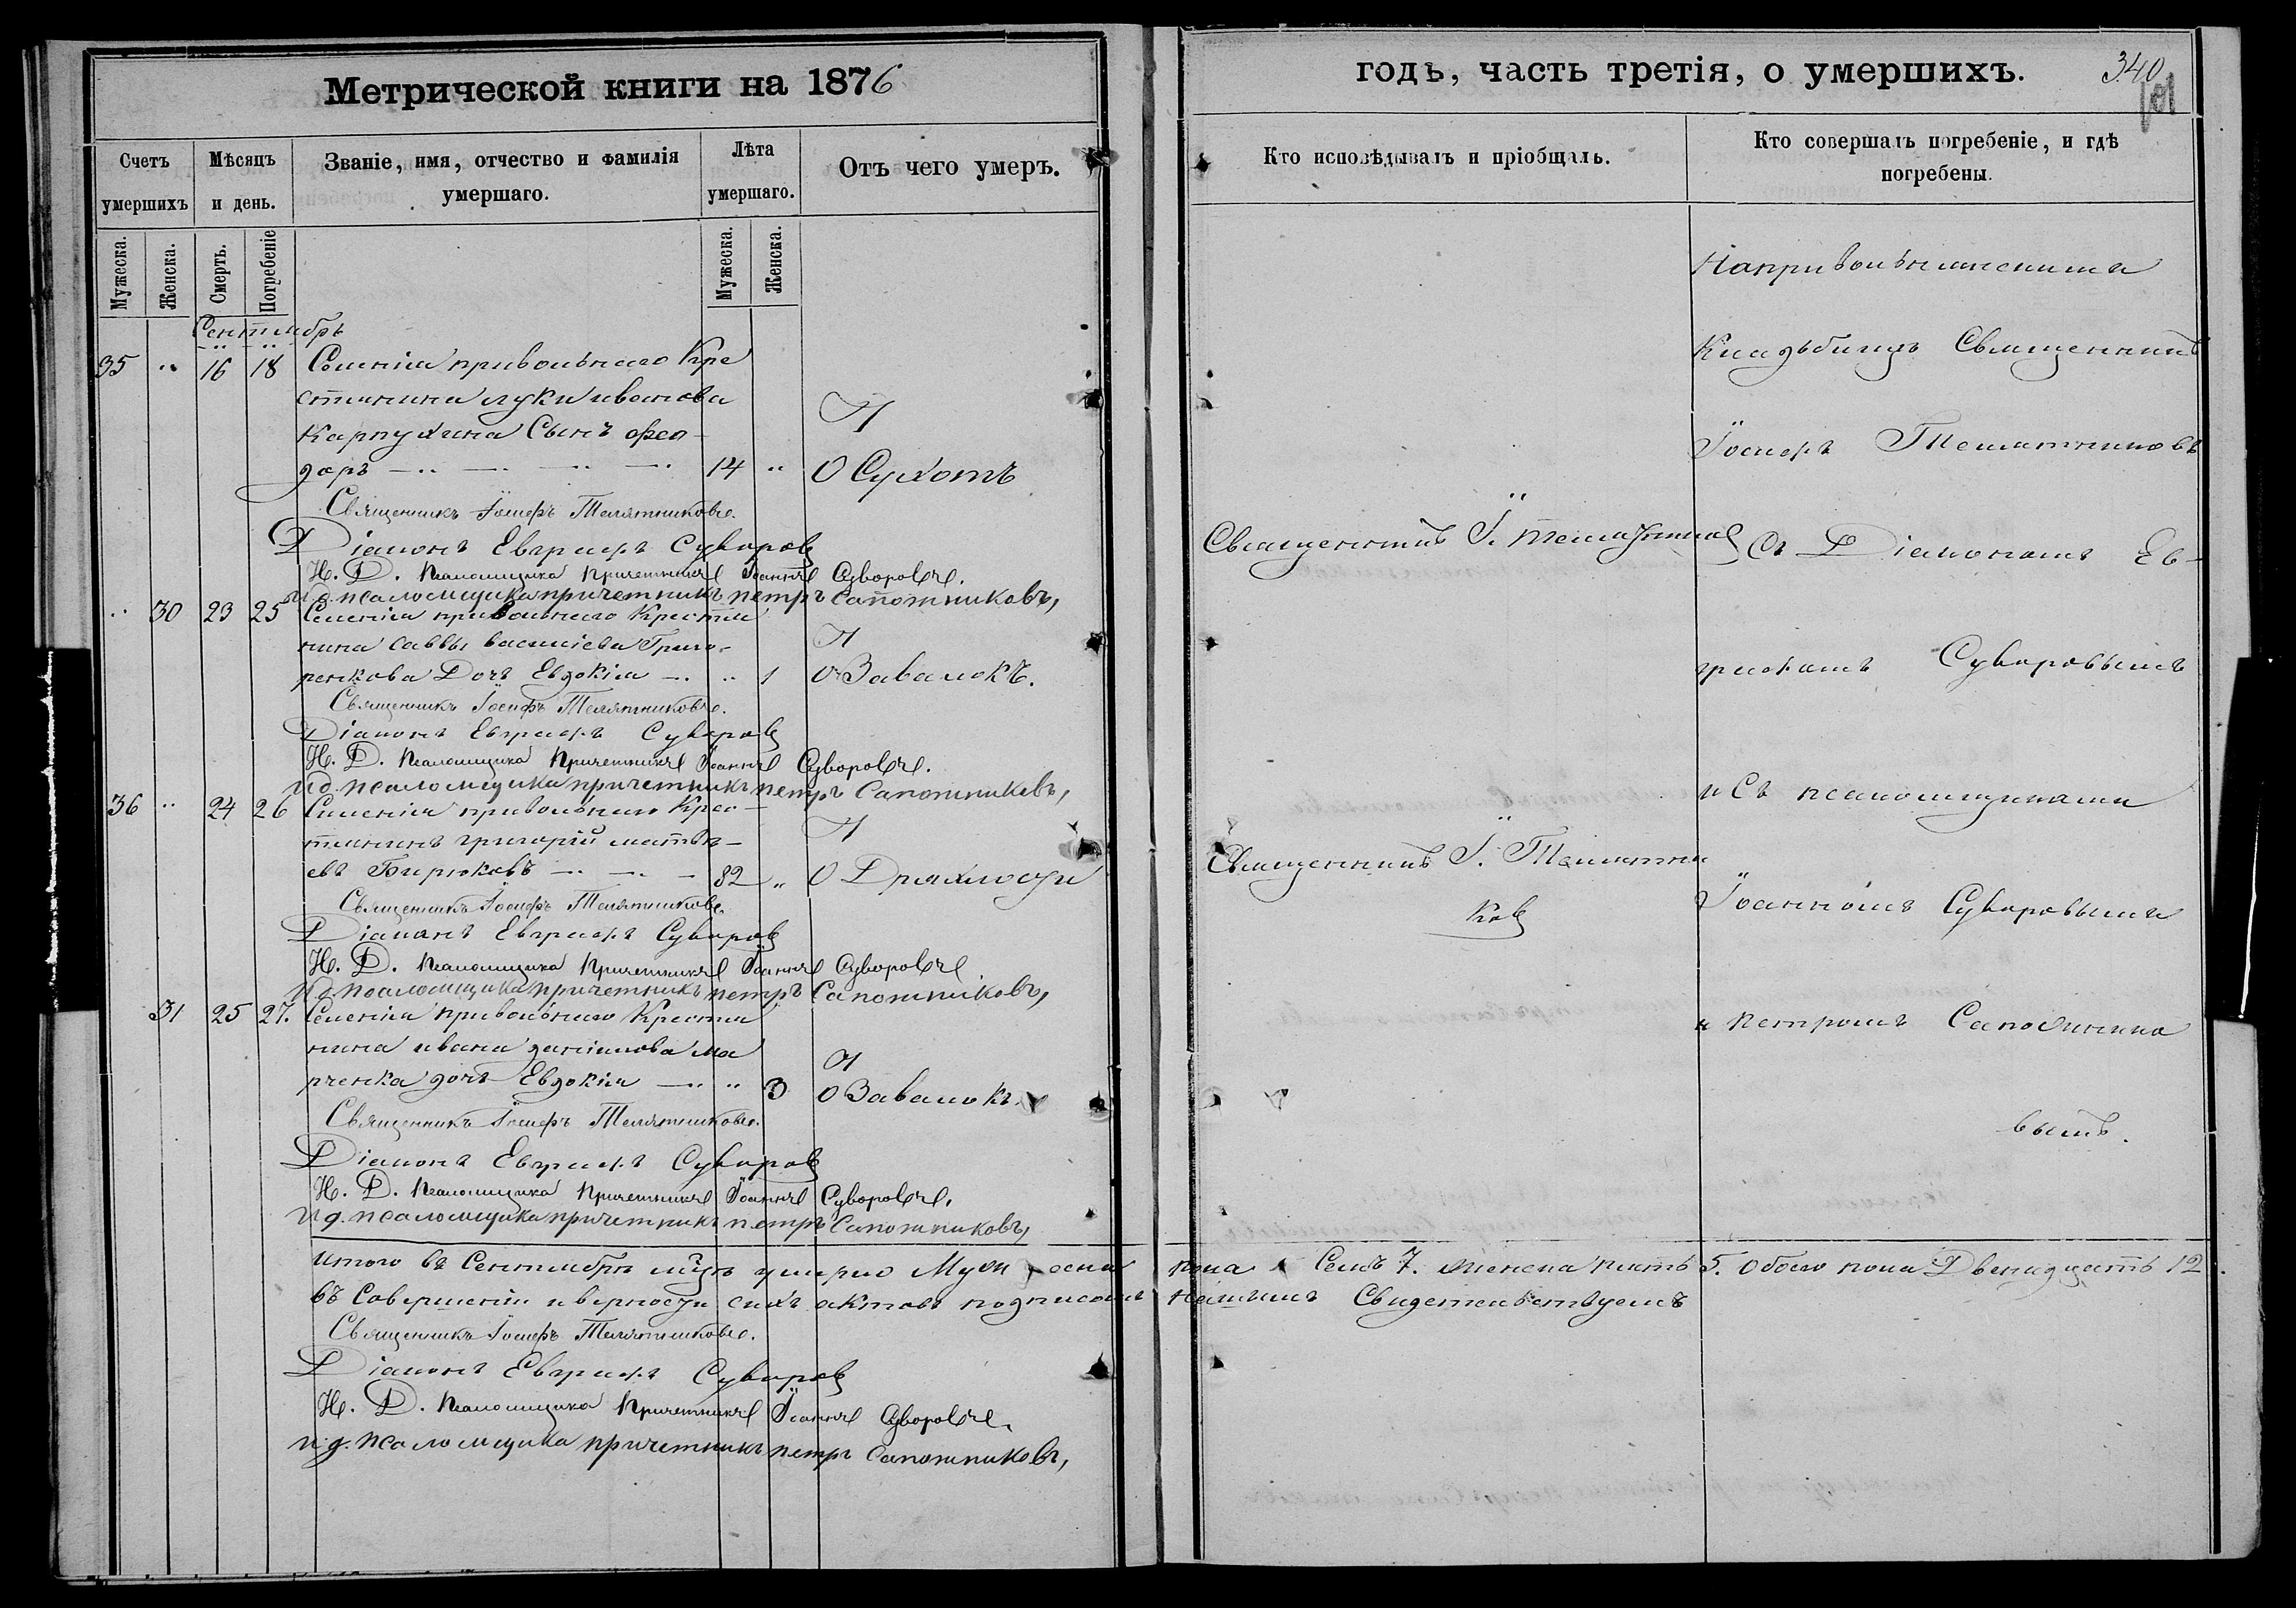 Метрической книги на 1876
годъ, часть третія, о умершихъ.
340
Счетъ умершихъ
Мѣсяцъ и день.
Званіе, имя, отчество и фамилія умершаго.
Лѣта умершаго.
Отъ чего умеръ.
Кто исповѣдывалъ и пріобщалъ.
Кто совершалъ погребеніе, и гдѣ погребены.
Мужеска.
Женска.
Смерть.
Погребеніе
Мужеска.
Женска.
Сентябрь
35 " 16 18 Селенія привольнаго Кре
стянина луки иванова
Карпухина Сынъ Фео-
доръ 14 " О Сухотъ
Священникъ Іосифъ Телятниковъ.
Діаконъ Евграфъ Суворов
И. Д. Псаломщика Причетникъ Іоаннъ Суворовъ.
И д. псаломщика причетникъ петръ Сапожниковъ,
" 30 23 25 Селенія привольнаго Крестья
нина саввы василіева Григо-
ренкова Дочь Евдокія " 1 О Завалокъ.
Священникъ Іосифъ Телятниковъ.
Діаконъ Евграфъ Суворов
И. Д. Псаломщика Причетникъ Іоаннъ Суворовъ.
И д. псаломщика причетникъ петръ Сапожниковъ,
36 " 24 26 Селенія привольнаго Крес-
тянинъ григорій матвѣ-
евъ Бирюковъ 82 " О Дряхлости
Священникъ Іосифъ Телятниковъ.
Діаконъ Евграфъ Суворов
И. Д. Псаломщика Причетникъ Іоаннъ Суворовъ
И д. псаломщика причетникъ петръ Сапожниковъ,
31 25 27. Селенія привольнаго Крестья
нина ивана даніилова ма
рченка дочь Евдокія " 3 О Завалокъ
Священникъ Іосифъ Телятниковъ.
Діаконъ Евграфъ Суворов
И. Д. Псаломщика Причетникъ Іоаннъ Суворовъ.
И д. псаломщика причетникъ петръ Сапожниковъ,
Священникъ І. Телятников
Священникъ І. Телятни
ков
На привольнянскомъ
Кладбищѣ Священникъ
Іосифъ Телятниковъ
Съ Діакономъ Ев-
графомъ Суворовымъ
и Съ псаломщиками
Іоанномъ Суворовымъ
и петромъ Сапожнико
вымъ.
Итого въ Сентябрѣ мцѣ умерло Муж еска пола Семь 7. женска пять 5. Обоего пола Двенадцать 12.
въ Совершеніи и верности сихъ актовъ подписомъ нашимъ Свидетельствуемъ
Священникъ Іосифъ Телятниковъ.
Діаконъ Евграфъ Суворов
И. Д. Псаломщика Причетникъ Іоаннъ Суворовъ.
И д. псаломщика причетникъ петръ Сапожниковъ,